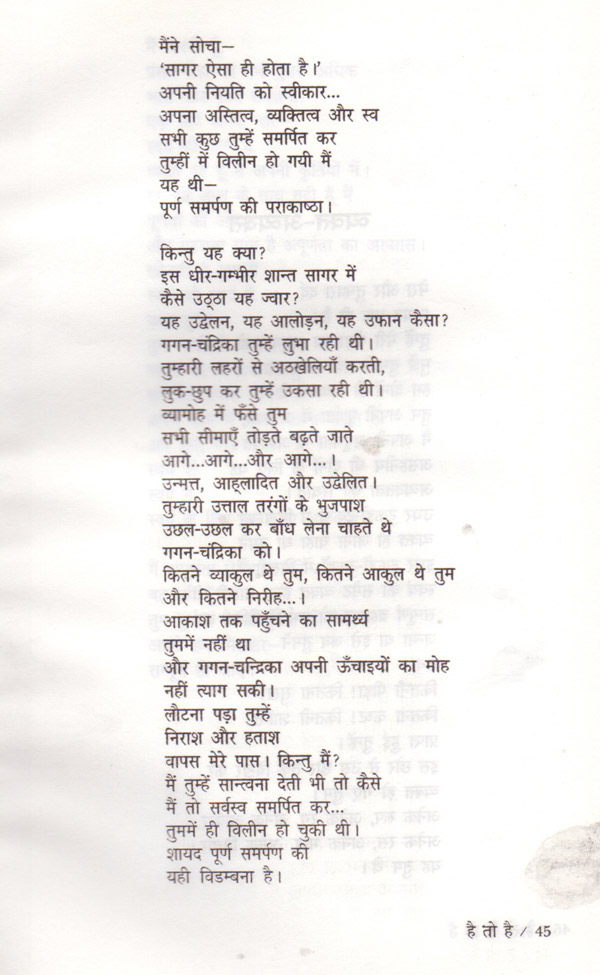 मैंने सोचा–
‘सागर ऐसा ही होता है।’
अपनी नियति को स्वीकार...
अपना अस्तित्व, व्यक्तित्व और स्व
सभी कुछ तुम्हें समर्पित कर
तुम्हीं में विलीन हो गयी मैं
यह थी–
पूर्ण समर्पण की पराकाष्ठा।

किन्तु यह क्या?
इस धीर-गम्भीर शान्त सागर में
कैसे उठ्ठा यह ज्वार?
यह उद्वेलन, यह आलोड़न, यह उफान कैसा?
गगन-चंद्रिका तुम्हें लुभा रही थी।
तुम्हारी लहरों से अठखेलियाँ करती,
लुक-छुप कर तुम्हें उकसा रही थी।
व्यामोह में फँसे तुम
सभी सीमाएँ तोड़ते बढ़ते जाते
आगे...आगे...और आगे...।
उन्मत्त, आह्लादित और उद्वेलित।
तुम्हारी उत्ताल तरंगों के भुजपाश
उछल-उछल कर बाँध लेना चाहते थे
गगन-चंद्रिका को।
कितने व्याकुल थे तुम, कितने आकुल थे तुम
और कितने निरीह...।
आकाश तक पहुँचने का सामर्थ्य
तुममें नहीं था
और गगन-चन्द्रिका अपनी ऊँचाइयों का मोह
नहीं त्याग सकी।
लौटना पड़ा तुम्हें
निराश और हताश
वापस मेरे पास। किन्तु मैं?
मैं तुम्हें सान्त्वना देती भी तो कैसे
मैं तो सर्वस्व समर्पित कर...
तुममें ही विलीन हो चुकी थी।
शायद पूर्ण समर्पण की
यही विडम्बना है।

है तो है / 45